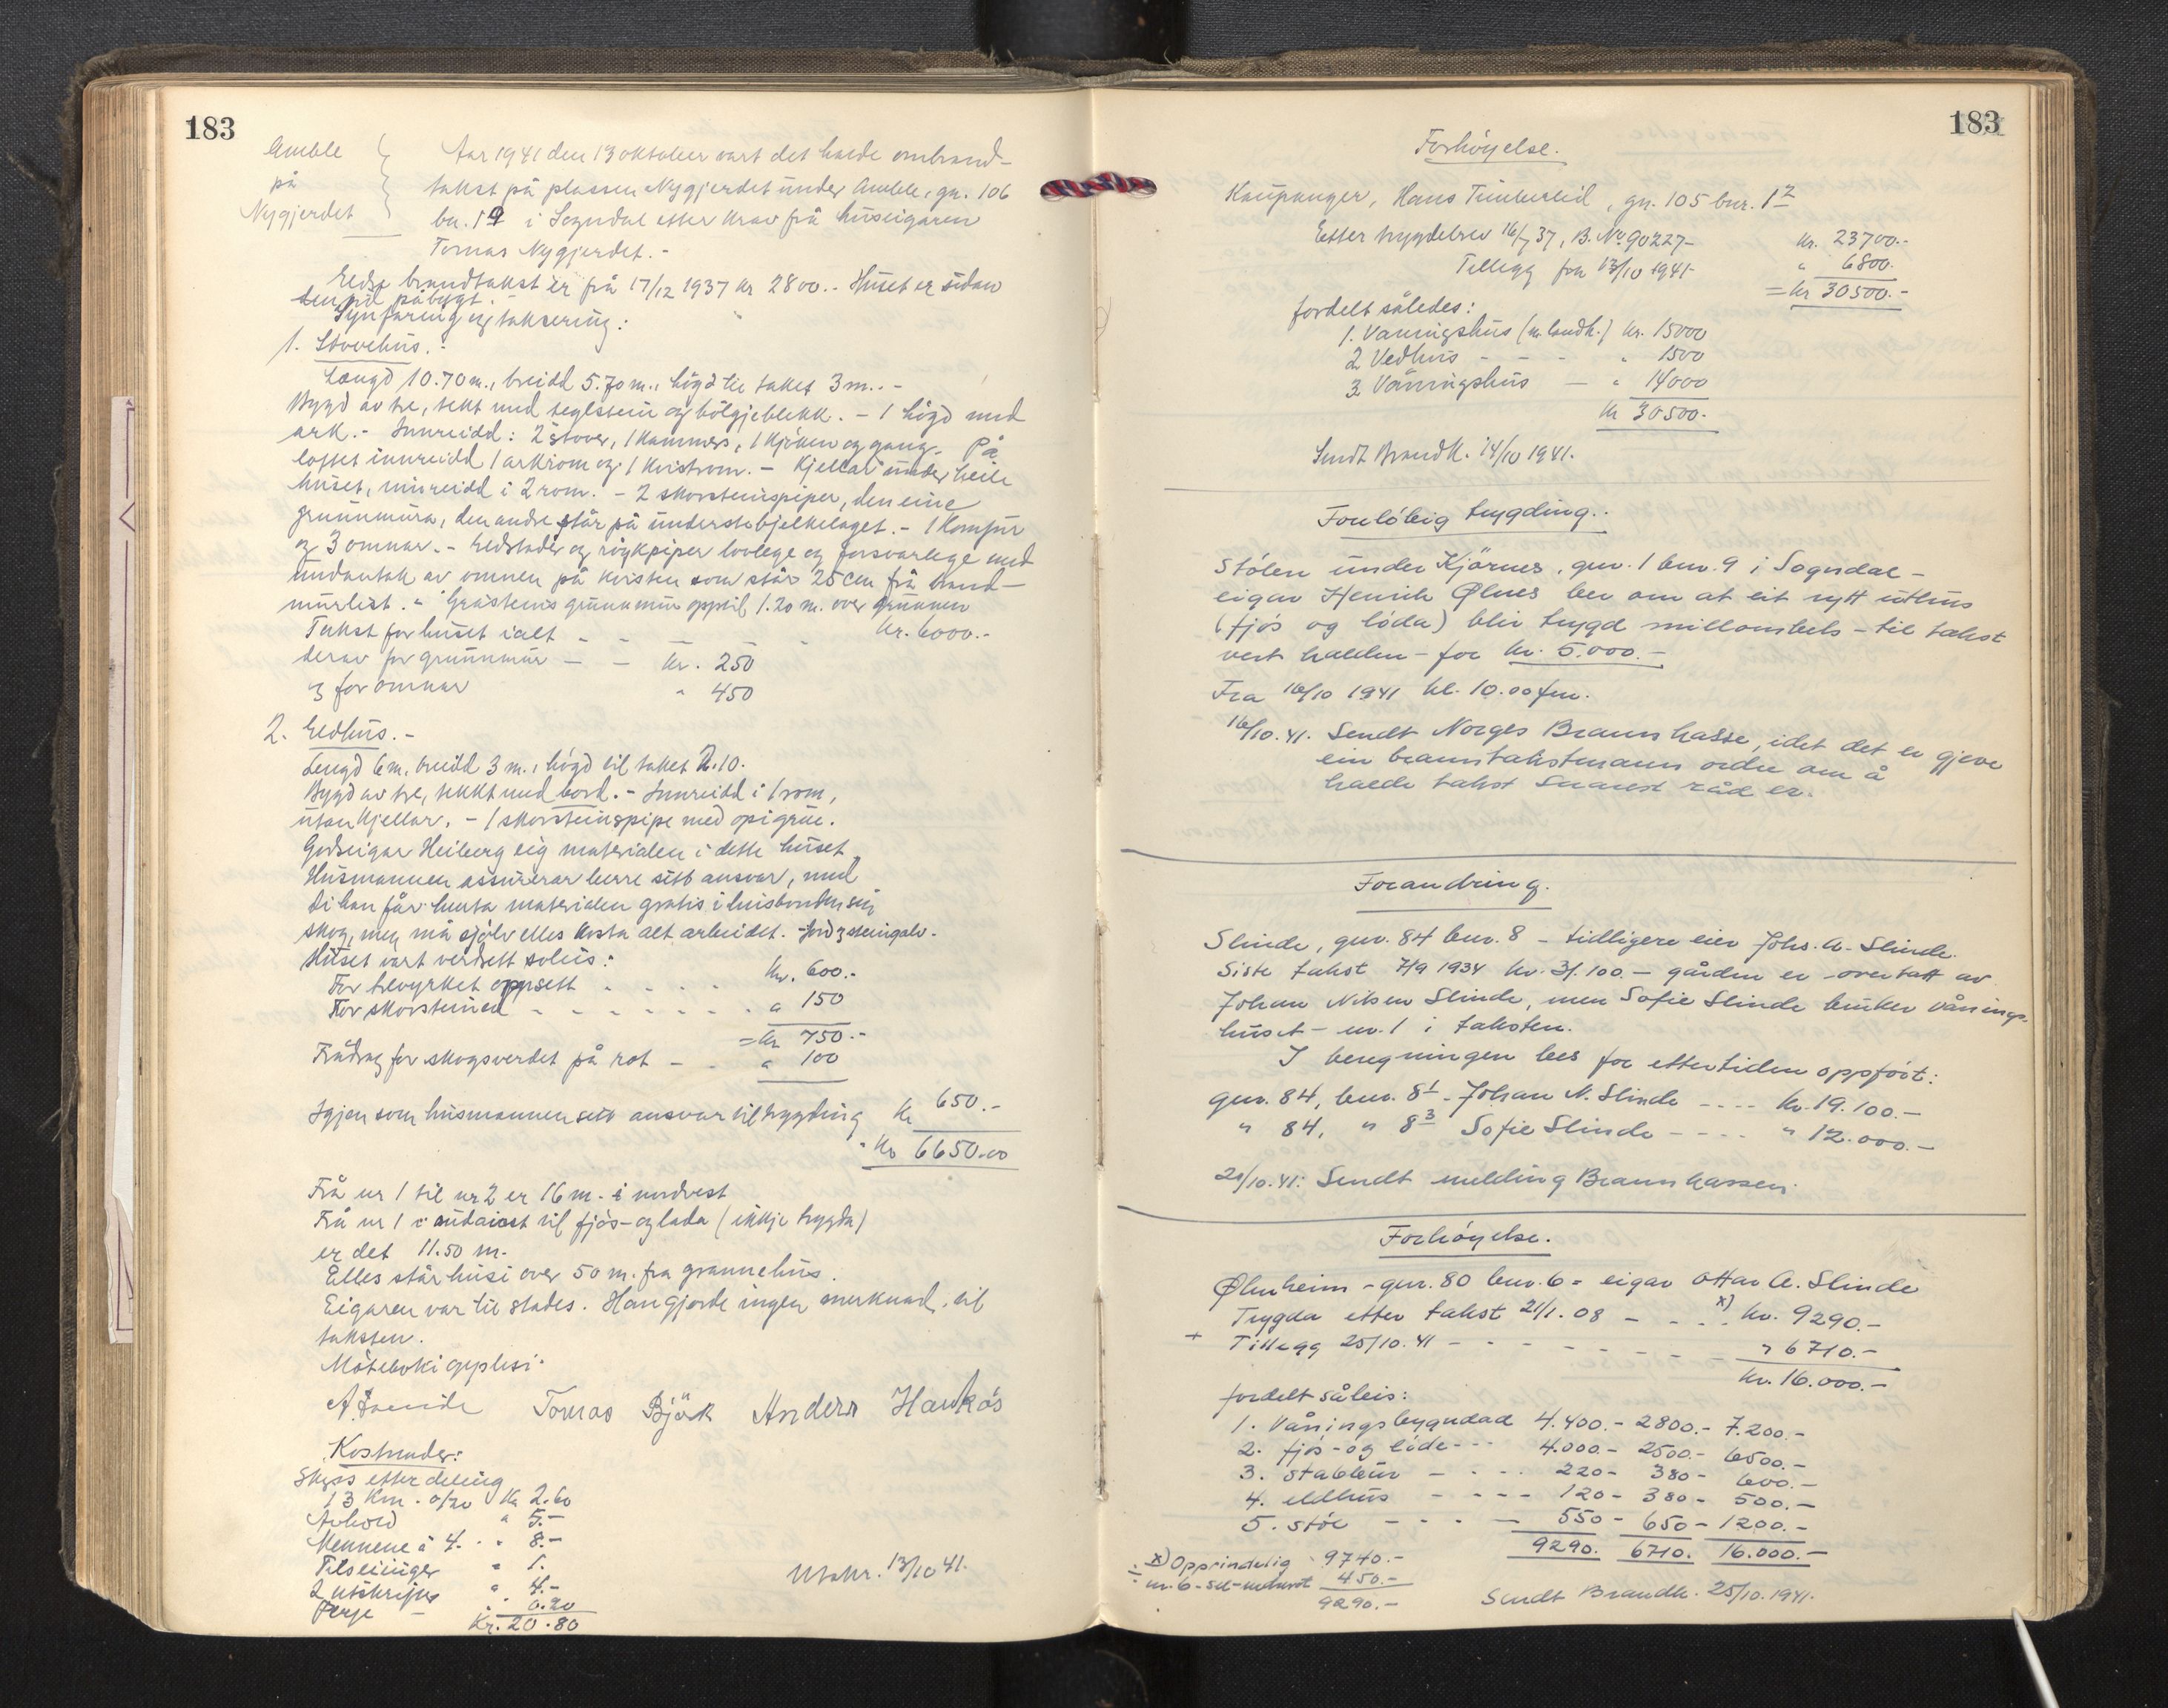 183
Amble
på
Nygjerdet
Aar 1941 den 13 oktober vart det halde ombrand-
takst på plassen Nygjerdet under Amble, gn. 106
bn. 19 i Sogndal etter krav frå huseigaren
Tomas Nygjerdet. -
Eldre brandtakst er frå 17/12 1937 kr 2800.- Huset er sidan
den tid påbygt. -
Synfaring og taksering:
1. Stovehus. -
Længd 10.70 m., breidd 5.70 m., högd til taket 3 m.. -
Bygd av tre, tekt med teglstein og bölgjeblekk. - 1 högd med
ark. - Innreidd: 2 stover, 1 kammers, 1 kjöken og gang. På
loftet innreidd 1 arkrom og 1 kvistrom. - Kjellar under heile
huset, innreidd i 2 rom. - 2 skorsteinspiper, den eine
grunnmura, den andre står på understebjelkelaget. - 1 komfur
og 3 omnar. - Eldstader og röykpiper lovlege og forsvarlege med
undantak av omnen på kvisten som står 25 cm frå brand-
murlist. - Gråsteins grunnmur opptil 1.20 m. over grunnen
Takst for huset ialt - - - - kr. 6000.-
derav for grunnmur - - kr. 250
og for omnar " 450
2. Eldhus. -
Lengd 6 m, breidd 3 m., högd til taket 2.10.
Bygd av tre, tekkt med bord. - Innreidd i 1 rom,
utan kjellar. - 1 skorsteinspipe med opi grue.
Godseigar Heiberg eig materialen i dette huset.
Husmannen assurerar berre sitt ansvar, med
di han får henta materialen gratis i husbonden sin
skog, men må sjölv elles kosta alt arbeidet. - Jord og steingolv.
Huset vart verdsett soleis:
For trevyrket oppsett - - - - kr. 600.-
For skorsteinen - - - - - - " 150
= kr 750.-
Frådrag for skogsverdet på rot - - " 100
Igjen som husmannen sitt ansvar til trygding kr 650.-
= kr 6650.00
Frå nr 1 til nr 2 er 16 m. i nordvest
Frå nr 1 i sudaust til fjös- og lada (ikkje trygda)
er det 11.50 m.
Elles står husi over 50 m. fra grannehus.
Eigaren var til stades. Han gjorde ingen merknad til
taksten.
Möteboki opplesi.
Tomas Björk Anders Haukås
Kostnader:
Skyss etter deling
13 Km. o/20 Kr 2.60
Avhold " 5.-
Mennene à 4. - " 8.-
Tilseiinger " 1.
2 utskrifter " 4.-
Ferje - " 0.20
Kr. 20.80
Utskr. 13/10 41.
183
Forhöyelse.
Kaupanger, Hans Timberlid, gn. 105 bnr. 17
Etter trygdebrev 16/7 37, B. No 90227- kr. 23700.-
Tillegg fra 13/10 1941- " 6800.
= kr 30500.-
fordelt således:
1. Vaningshus (m. landh.) kr. 15000
2 Vedhus - - - " 1500
3 Våningshus - " 14000
kr 30500.-
Sendt Brandk. 14/10 1941.
Forelöbig trygding..
Stölen under Kjörnes, gnr. 1 bnr. 9 i Sogndal -
eigar Henrik Ølnes ber om at eit nytt uthus
(fjös og löda) blir trygd millombels - til takst
vert halden - for kr. 5.000.-
Fra 16/10 1941 kl. 10.00 fm.
16/10.41. Sendt Norges Brannkasse, idet det er gjeve
ein branntakstmann ordre om å
halde takst snarest råd er.
Forandring.
Slinde, gnr. 84 bnr. 8 - tidligere eier Johs. A. Slinde.
Siste takst 7/9 1934 kr. 31.100.- gården er overtatt av
Johan Nilsen Slinde, men Sofie Slinde bruker vånings-
huset - nr. 1 i taksten.
I beregningen bes for ettertiden oppfört:
gnr. 84, bnr. 81 - Johan N. Slinde ---- kr. 19.100.-
" 84, " 83 Sofie Slinde - ---- " 12.000.-
20/10.41: Sendt melding Brannkassen.
Forhöyelse.
Ølmheim - gnr. 80 bnr. 6 - eigar Ottar A. Slinde
Trygda etter takst 21/1.08 - - - x) kr. 9290.-
+ Tillegg 25/10.41 - - - - - - " 6710.-
kr. 16.000.-
fordelt såleis:
1. Våningsbygnad 4.400.- 2800.- 7.200.-
2. fjös- og löde - - - 4.000.- 2500.- 6500.-
3. stabbur - - - - 220- 380- 600.-
4. eldhus - - - - 120- 380- 500.-
5. stöl - - - - 550- 650- 1200.-
9290. 6710. 16.000.-
x) Opprindelig 9740.-
÷ nr. 6 - 450.-
9290.-
Sendt Brandk. 25/10.1941.